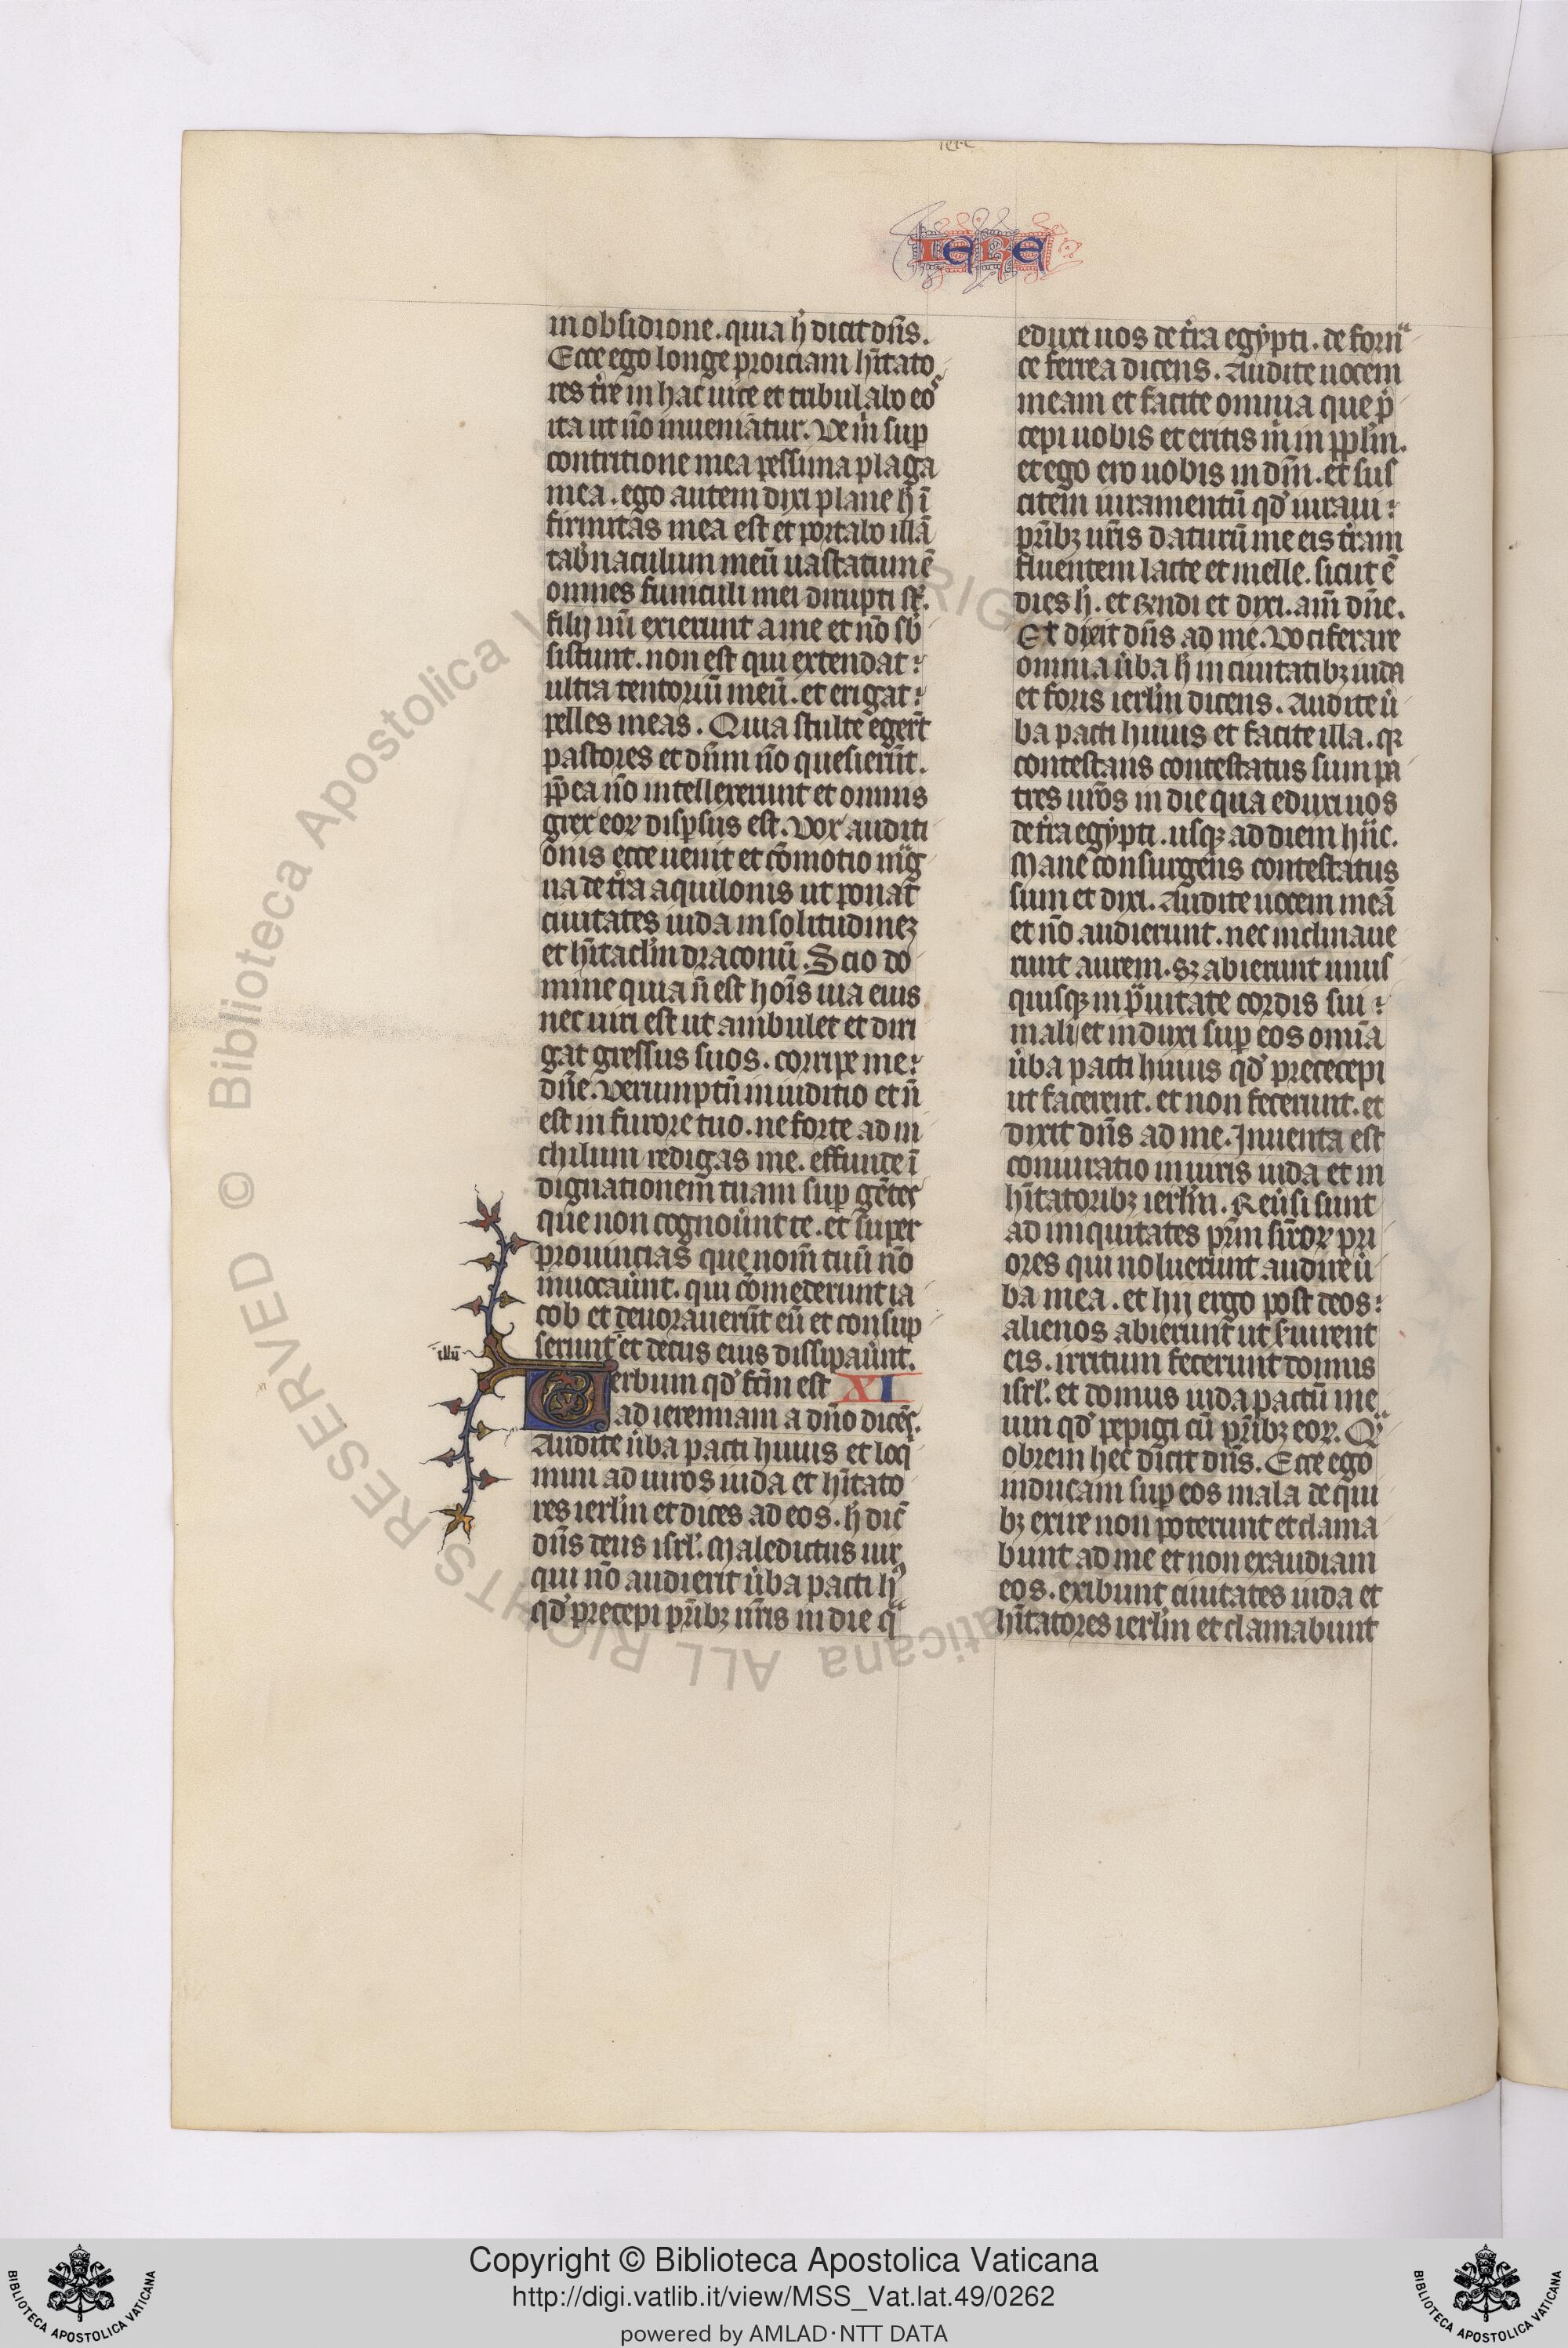 IERE
in obsidione. quia h̄ dicit dn̄s.
Ecce ego longe proiciam hītato
res t̓re in hac uice et tribulabo eos
ita ut nō inueniātur. Ve m̄ sup̄
contritione mea pessima plaga
mea. ego autem dixi plane h̄ ī
firmitas mea est et portabo illā
tab̓naculum meū uastatum ē
omnes funiculi mei dirupti st̄.
filij mī exierunt a me et nō sb̄
sistunt. non est qui extendat
ultra tentoriū meū. et erigat
pelles meas. Quia stulte egerūt
pastores et dn̄m nō quesierūt.
p̄p̄ea nō intellexerunt et omnis
grex eoꝝ disꝑsus est. Vox auditi
onis ecce uenit et cōmotio mag
na de t̓ra aquilonis ut ponat
ciuitates iuda in solitudineꝫ
et hītaclm̄ draconū. Scio do
mine quia n̄ est hoīs uia eius
nec uiri est ut ambulet et diri
gat gressus suos. corripe me
dn̄e. Verumptn̄ in iuditio et n̄
est in furore tuo. ne forte ad ni
chilum redigas me. effunde ī
dignationem tuam suꝑ gētes
que non cognou̓unt te. et super
prouincias que nom̄ tuū nō
inuocau̓unt. qui cōmederunt ia
cob et deuorauerūt eū et consūp
serunt et decus eius dissipau̓unt.
illū
Verbum qd̓ fc̄m est XI
ad ieremiam a dn̄o dicēs.
Audite u̓ba pacti huius et loq̄
mini ad uiros iuda et hītato
res ierlm̄ et dices ad eos. h̄ dic̄
dn̄s deus isrl̓. Maledictus uir
qui nō audierit u̓ba pacti hꝰ
qd̓ precepi pr̄ibꝫ ur̄is in die qᵃ
eduxi uos de t̓ra egypti. de fornᵃ
ce ferrea dicens. Audite uocem
meam et facite omnia que p̄
cepi uobis et eritis m̄ in pp̄lm̄.
et ego ero uobis in dm̄. et sus
citem iuramentū qd̓ iuraui
pr̄ibꝫ ur̄is daturū me eis t̓ram
fluentem lacte et melle. sicut ē
dies h̄. et r̄ndi et dixi. am̄ dn̄e.
Et dixit dn̄s ad me. Vociferare
omnia u̓ba h̄ in ciuitatibꝫ iuda
et foris ierlm̄ dicens. Audite u̓
ba pacti huius et facite illa. qꝫ
contestans contestatus sum pa
tres ur̄os in die qua eduxi uos
de t̓ra egypti. usqꝫ ad diem hūc.
Mane consurgens contestatus
sum et dixi. Audite uocem meā
et nō audierunt. nec inclinaue
runt aurem. sꝫ abierunt unus
quisqꝫ in pᵃuitate cordis sui
mali et induxi suꝑ eos omīa
u̓ba pacti huius qd̓ prececepi
ut facerent. et non fecerunt. et
dixit dn̄s ad me. Inuenta est
coniuratio in uiris iuda et in
hītatoribꝫ ierlm̄. Reu̓si sunt
ad iniquitates pr̄m suoꝝ pri
ores qui noluerunt audire u̓
ba mea. et hij ergo post deos
alienos abierunt ut s̓uirent
eis. irritum fecerunt domus
isrl̓. et domus iuda pactū me
um qd̓ pepigi cū pr̄ibꝫ eoꝝ. Qᵃ
obrem hec dicit dn̄s. Ecce ego
inducam suꝑ eos mala de qui
bꝫ exire non poterunt et clama
bunt ad me et non exaudiam
eos. exibunt ciuitates iuda et
hītatores ierlm̄ et clamabunt
© Biblioteca Apostolica Vaticana ALL RIGHTS RESERVED
Copyright © Biblioteca Apostolica Vaticana
http://digi.vatlib.it/view/MSS_Vat.lat.49/0262
powered by AMLAD·NTT DATA
BIBLIOTECA APOSTOLICA VATICANA
BIBLIOTECA APOSTOLICA VATICANA